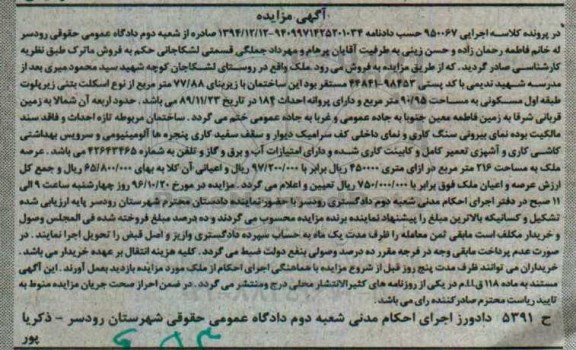 آگهی مزایده
در پرونده کلاسه اجرایی ۹۵۰۰۶۷ حسب دادنامه ۱۰۳۴-۹۴۰۹۹۷۱۴۲۵۲۰ ۱۳۹۴/۱۲/۱۳ صادره از شعبه دوم دادگاه عمومی حقوقی رودسر
له خانم فاطمه رحمان زاده و حسن زینی به طرفیت آقایان پرهام و مهرداد جملگی قسمتی لشکاجانی حکم به فروش ماترک طبق نظریه
کارشناسی صادر گردید. که از طریق مزایده به فروش می رود ملک واقع در روستای لشکاجان کوچه شهید سید محمود میری بعد از
مدرسه شهید ندیمی با کد پستی ۹۸۴۵۳-۴۴۸۴۱ مستقر بود این ساختمان با زیربنای ۷۷/۸۸ متر مربع از نوع اسکلت بتنی زیرپلوت
طبقه اول مسکونی به مساحت ۹۰/۹۵ متر مربع و دارای پروانه احداث ۱۸۴ در تاریخ ۸۹/۱۱/۲۳ می باشد. حدود اربعه آن شمالا به زمین
قربانی شرقا به زمین فاطمه معین جنوبا به جاده عمومی و غربا به جاده عمومی ختم می گردد. ساختمان مربوطه تازه احداث و فاقد سند
مالکیت بوده نمای بیرونی سنگ کاری و نمای داخلی کف سرامیک دیوار و سقف سفید کاری پنجره ها آلومینیومی و سرویس بهداشتی
کاشی کاری و آشپزی تعمیر کامل و کابینت کاری شده و دارای امتیازات آب و برق و گاز و تلفن به شماره ۴۲۶۴۳۴۶۵ می باشد. عرصه
ملک به مساحت ۲۱۶ متر مربع در ازای متری ۴۵۰۰۰۰ ریال برابر با ۹۷/۲۰۰/۰۰۰ ریال و اعیانی آن کلا به بهای ۶۵/۸۰۰/۰۰۰ ریال و جمع کل
ارزش عرصه و اعیان ملک فوق برابر با ۷۵۰/۰۰۰/۰۰۰ ریال تعیین و اعلام می گردد. مزایده در مورخ ۹۶/۱۰/۲۰ روز چهارشنبه ساعت ۹ الی
۱۱ صبح در دفتر اجرای احکام مدنی شعبه دوم دادگستری رودسر با حضور نماینده دادستان محترم شهرستان رودسر پایه ارزیابی شده
تشکیل و کسانیکه بالاترین مبلغ را پیشنهاد نماینده برنده مزایده محسوب می گردند و ده درصد مبلغ فروخته شده فی المجلس وصول
و خریدار مکلف است مابقی ثمن معامله را ظرف مدت یک ماه به حساب سپرده دادگستری واریز و اصل قبض را تحویل اجرا نمایند. در
صورت عدم پرداخت مابقی وجه در فرجه مقرر ده درصد وصولی بنفع دولت ضبط می گردد. کلیه هزینه انتقال بر عهده خریدار می باشد.
خریداران می توانند ظرف مدت پنج روز قبل از شروع مزایده با هماهنگی اجرای احکام از ملک مورد مزایده بازدید بعمل آورند. این آگهی
مستند به ماده ۱۱۸ ق.ا.م در یکی از روزنامه های کثیرالانتشار محلی درج ومنتشر می گردد. در ضمن احراز صحت جریان مزایده منوط به
تایید ریاست محترم صادرکننده رای می باشد.
ح ۵۳۹۱ دادورز اجرای احکام مدنی شعبه دوم دادگاه عمومی حقوقی شهرستان رودسر - ذکریا
پور